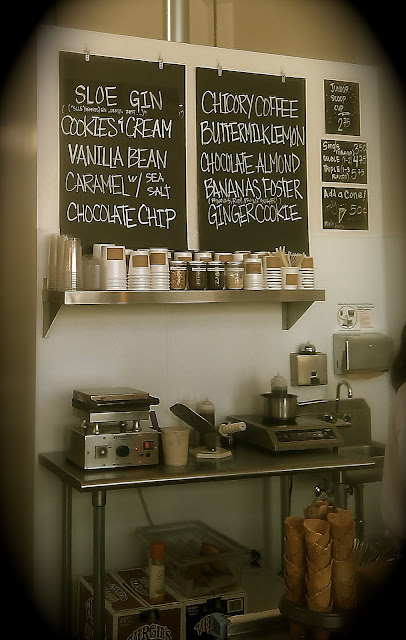 SLOE GIN
COOKIES & CREAM
VANILLA BEAN
CARAMEL w/ SEA SALT
CHOCOLATE CHIP
CHICORY COFFEE
BUTTERMILK LEMON
CHOCOLATE ALMOND
BANANAS FOSTER
GINGER COOKIE
JUNIOR
SCOOP
CUP
2.75
Single
DOUBLE
TRIPLE
Add a Cone!
50¢